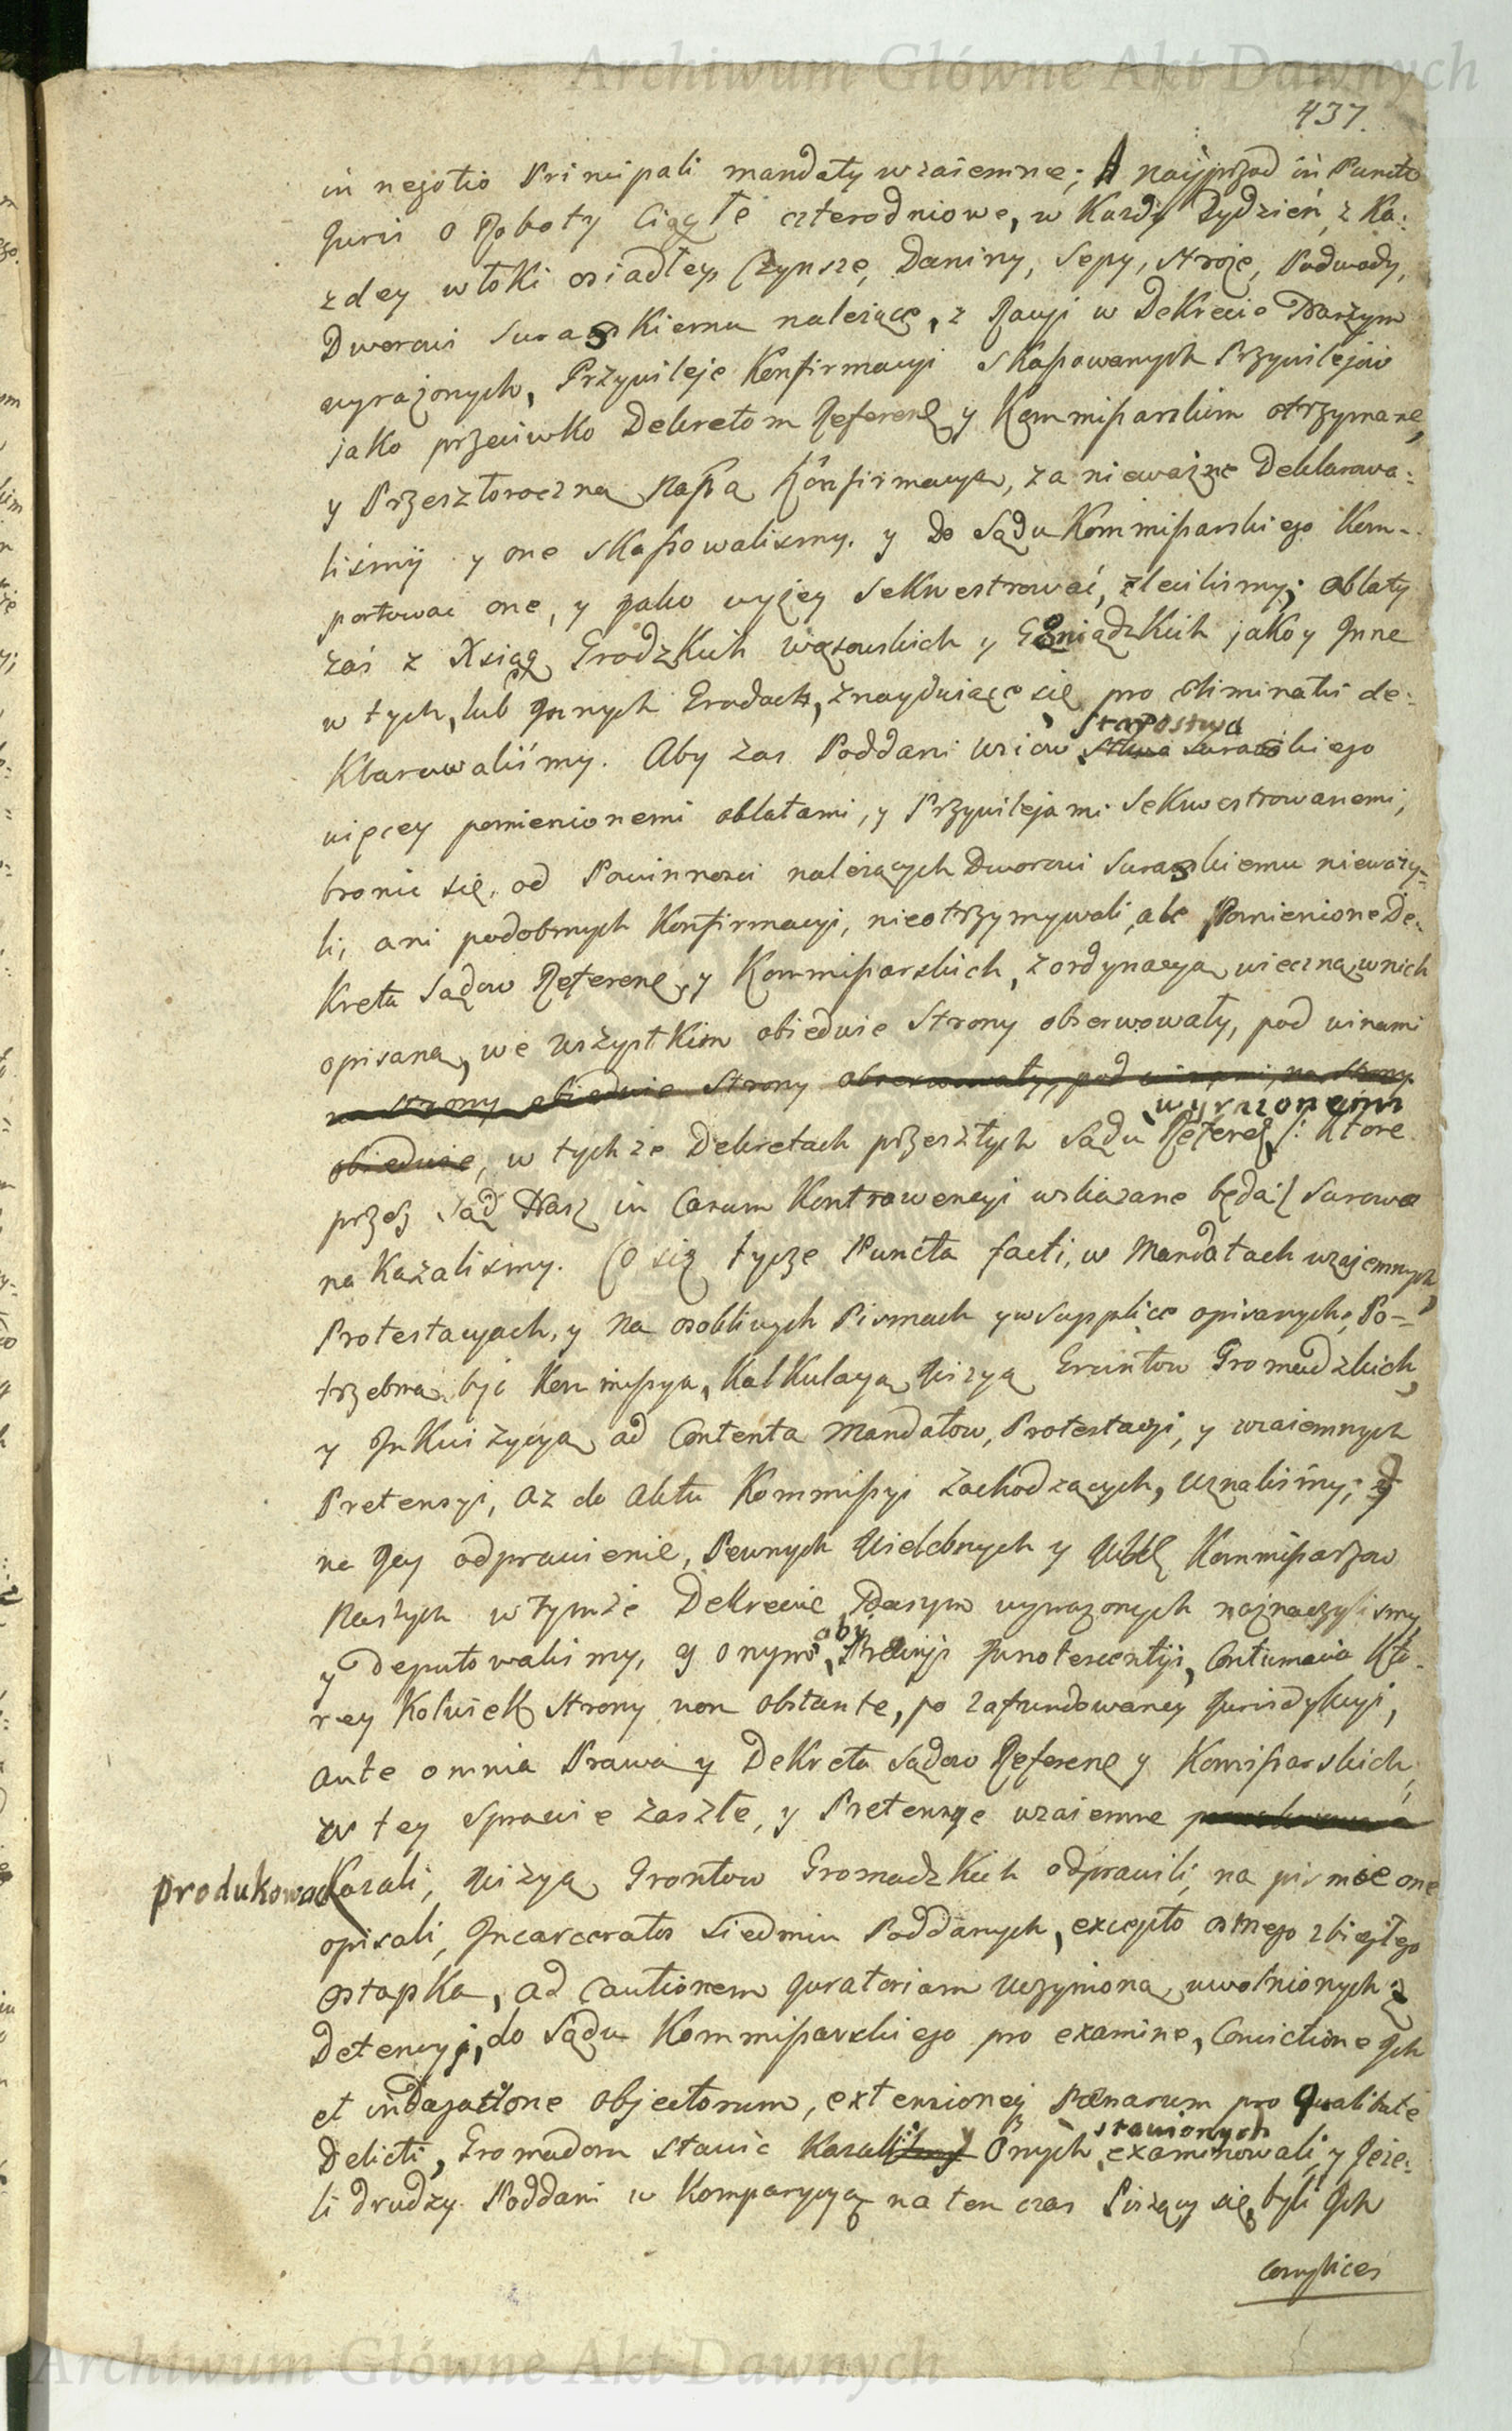 Archiwum Główne Akt Dawnych
437.
in negotio Principali mandaty wzaiemne; A nayprzod in Puncto
Juris o Roboty Ciągłe czterodniowe, w Każdy Tydzień, z Ka:
zdey włoki osiadłey, Czynsze, Daniny, Sepy, stroże, Podwody,
Dworowi Suraskiemu należące, z Racyi w Dekrecie Naszym
wyrażonych, Przywileje Konfirmacyi skassowanych Przywilejow
jako przeciwko Dekretom Referen. y Kommissarskim otrzymane,
y Przeszłoroczną Naszą Konfirmacyą, za nieważne Deklarowa:
liśmy y one skassowalismy. y do Sądu Kommissarskiego Kom-
portowac one, y jako wyżey Sekwestrować, zlecilismy; oblaty
zaś z Xsiąg Grodzkich wąsowskich y jako y Inne
w tych, lub Innych Grodach, znayduiące się pro eliminatis de:
klarowaliśmy. Aby zas Poddani wsiow Starostwa Suraskiego
więcey pomienionemi oblatami, y Przywilejami Sekwestrowanemi,
bronic się, od Powinnosci należących Dworowi Suraskiemu nieważy-
li, ani podobnych Konfirmacyi, nieotrzymywali, ale Pomienione De-
kreta Sądow Referen. y Kommissarskich, z ordynacyą wieczną w nich
opisaną, we wszystkim obiedwie Strony obserwowały, pod winami
na strony obiedwie Strony obserwowały, pod winami, na strony
wyrazonemi
obiedwie, w tychże Dekretach przeszłych Sądu Referen. /: które
przez Sąd Nasz in Casum Kontrawencyi wskazane będą :/ surowo
nakazalismy. Co się tycze Puncta facti, w Mandatach wzajemnych,
Protestacyach, y na osobliwych Pismach y w Supplice opisanych, Po-
trzebną być Kommissyą, Kalkulacyą, Wizyą Gruntow Gromadzkich,
y Inkwizycyą ad Contenta Mandatow, Protestacyi, y wzaiemnych
Pretensyi, az do aktu Kommissyi Zachodzących, uznaliśmy; y
na Jey odprawienie, Pewnych Wielebnych y Kommissarzow
Naszych w tymże Dekrecie Naszym wyrazonych naznaczylismy
y deputowalismy, y onym, aby Jnnotescentyi, Contumacia Kto-
rey Kolwiek strony non obstante, po zafundowaney Jurisdykcyi,
ante omnia Prawa y Dekreta Sądow Referen. y Komissarskich,
w tey Sprawie zaszłe, y Pretensye wzaiemne
produkować Kazali, Wizyą Grontow Gromadzkich odprawili, na pismie one
opisali, Incarceratos siedmiu Poddanych, excepto osmego zbiegłego
Ostapka, ad Cautionem Juratoriam uczynioną, uwolnionych z
Detencyi, do Sądu Kommissarskiego pro examine, Convictione Ich
et indagatione objectorum, extensioney Pœnarum pro Qualitate
Delicti, Gromadom stawić Kazali y Onych stawionych examinowali, y Jeże-
li drudzy Poddani w Komparycyą na ten czas Piszący się, byli Ich
complices
Archiwum Główne Akt Dawnych